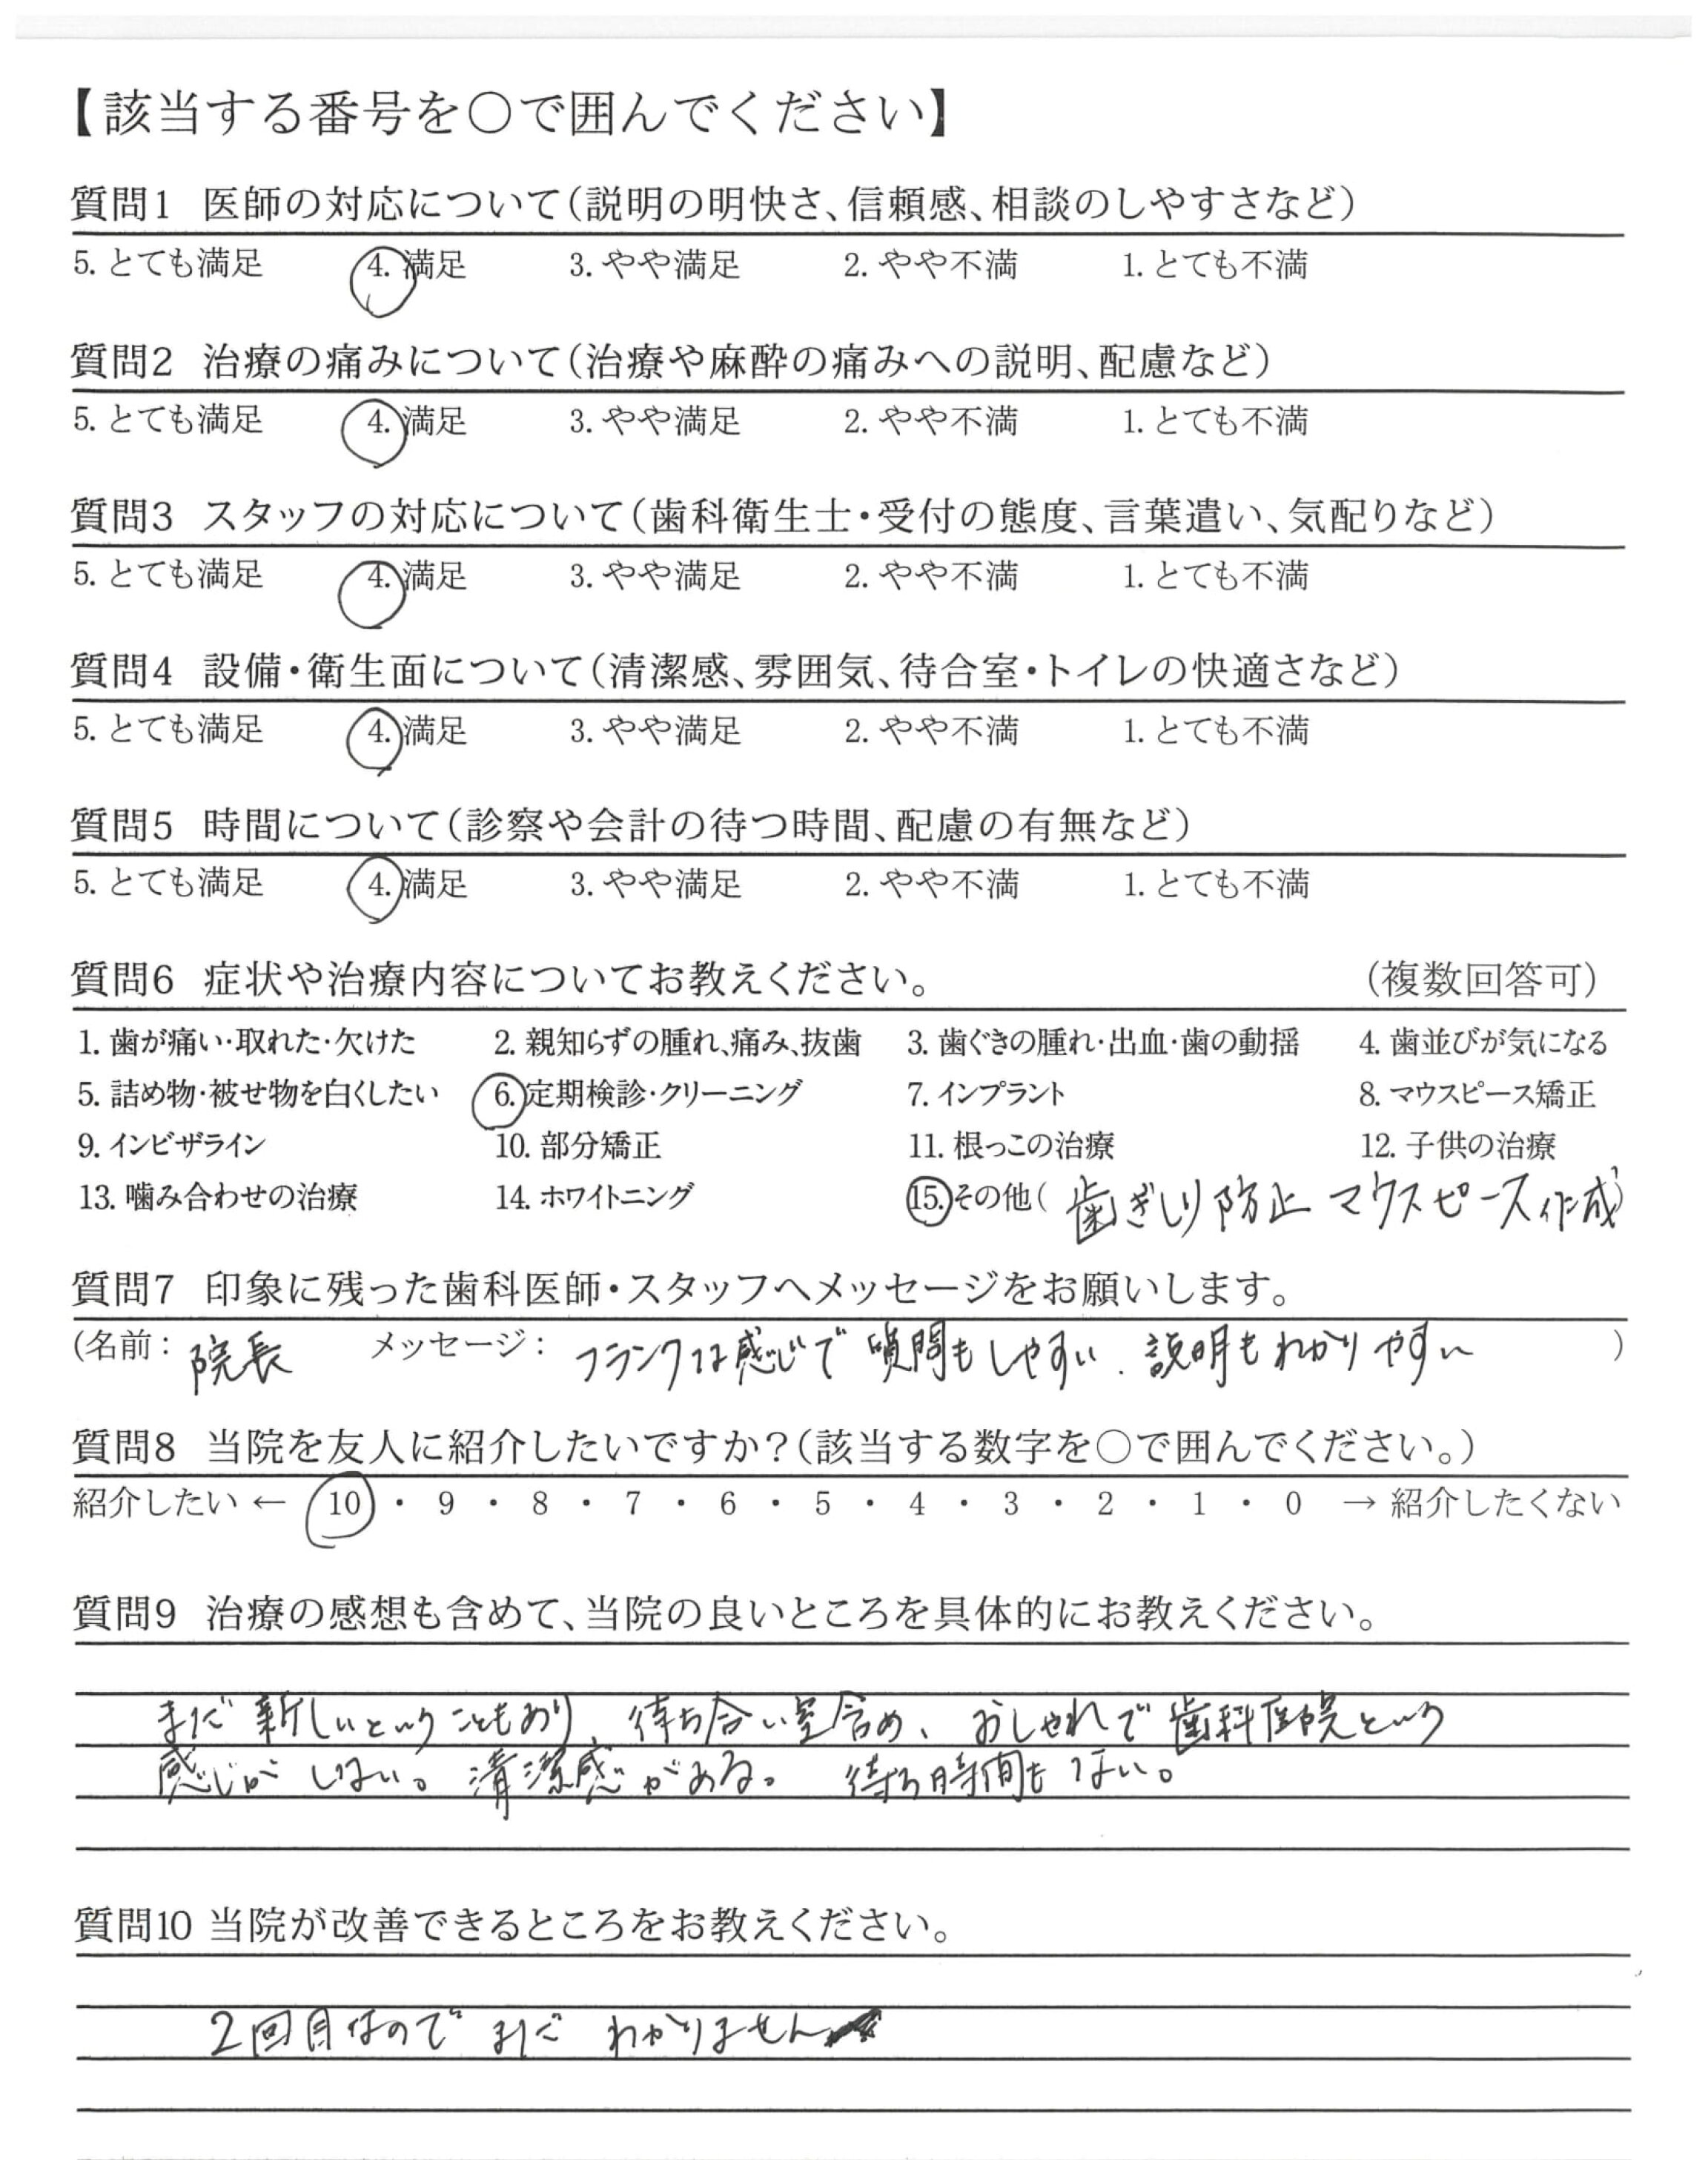 【該当する番号を〇で囲んでください】
質問1 医師の対応について(説明の明快さ、信頼感、相談のしやすさなど)
5. とても満足 4. 満足 3. やや満足 2. やや不満 1. とても不満
質問2 治療の痛みについて(治療や麻酔の痛みへの説明、配慮など)
5. とても満足 4. 満足 3. やや満足 2. やや不満 1. とても不満
質問3 スタッフの対応について(歯科衛生士・受付の態度、言葉遣い、気配りなど)
5. とても満足 4. 満足 3. やや満足 2. やや不満 1. とても不満
質問4 設備・衛生面について(清潔感、雰囲気、待合室・トイレの快適さなど)
5. とても満足 4. 満足 3. やや満足 2. やや不満 1. とても不満
質問5 時間について(診察や会計の待つ時間、配慮の有無など)
5. とても満足 4. 満足 3. やや満足 2. やや不満 1. とても不満
質問6 症状や治療内容についてお教えください。 (複数回答可)
1. 歯が痛い・取れた・欠けた 2. 親知らずの腫れ、痛み、抜歯 3. 歯ぐきの腫れ・出血・歯の動揺 4. 歯並びが気になる
5. 詰め物・被せ物を白くしたい 6. 定期検診・クリーニング 7. インプラント 8. マウスピース矯正
9. インビザライン 10. 部分矯正 11. 根っこの治療 12. 子供の治療
13. 噛み合わせの治療 14. ホワイトニング 15. その他( 歯ぎしり防止 マウスピース作成 )
質問7 印象に残った歯科医師・スタッフへメッセージをお願いします。
(名前: 院長 メッセージ: フランクな感じで質問もしやすい. 説明もわかりやすい )
質問8 当院を友人に紹介したいですか?(該当する数字を〇で囲んでください。)
紹介したい ← 10 ・ 9 ・ 8 ・ 7 ・ 6 ・ 5 ・ 4 ・ 3 ・ 2 ・ 1 ・ 0 → 紹介したくない
質問9 治療の感想も含めて、当院の良いところを具体的にお教えください。
まだ新しいということもあり、待ち合い室含め、おしゃれで歯科医院という
感じがしない。清潔感がある。 待ち時間もない。
質問10 当院が改善できるところをお教えください。
2回目なので まだ わかりません